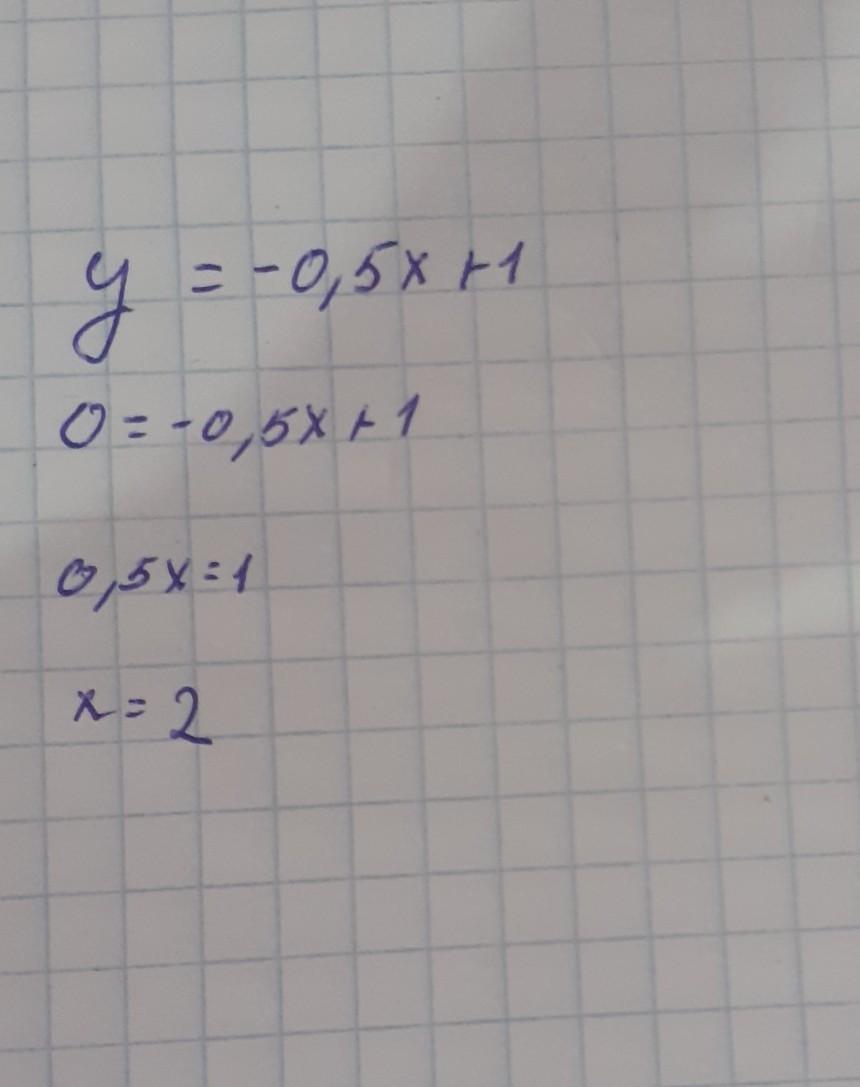 y = -0,5x+1
0=-0,5x+1
0,5x=1
x= 2